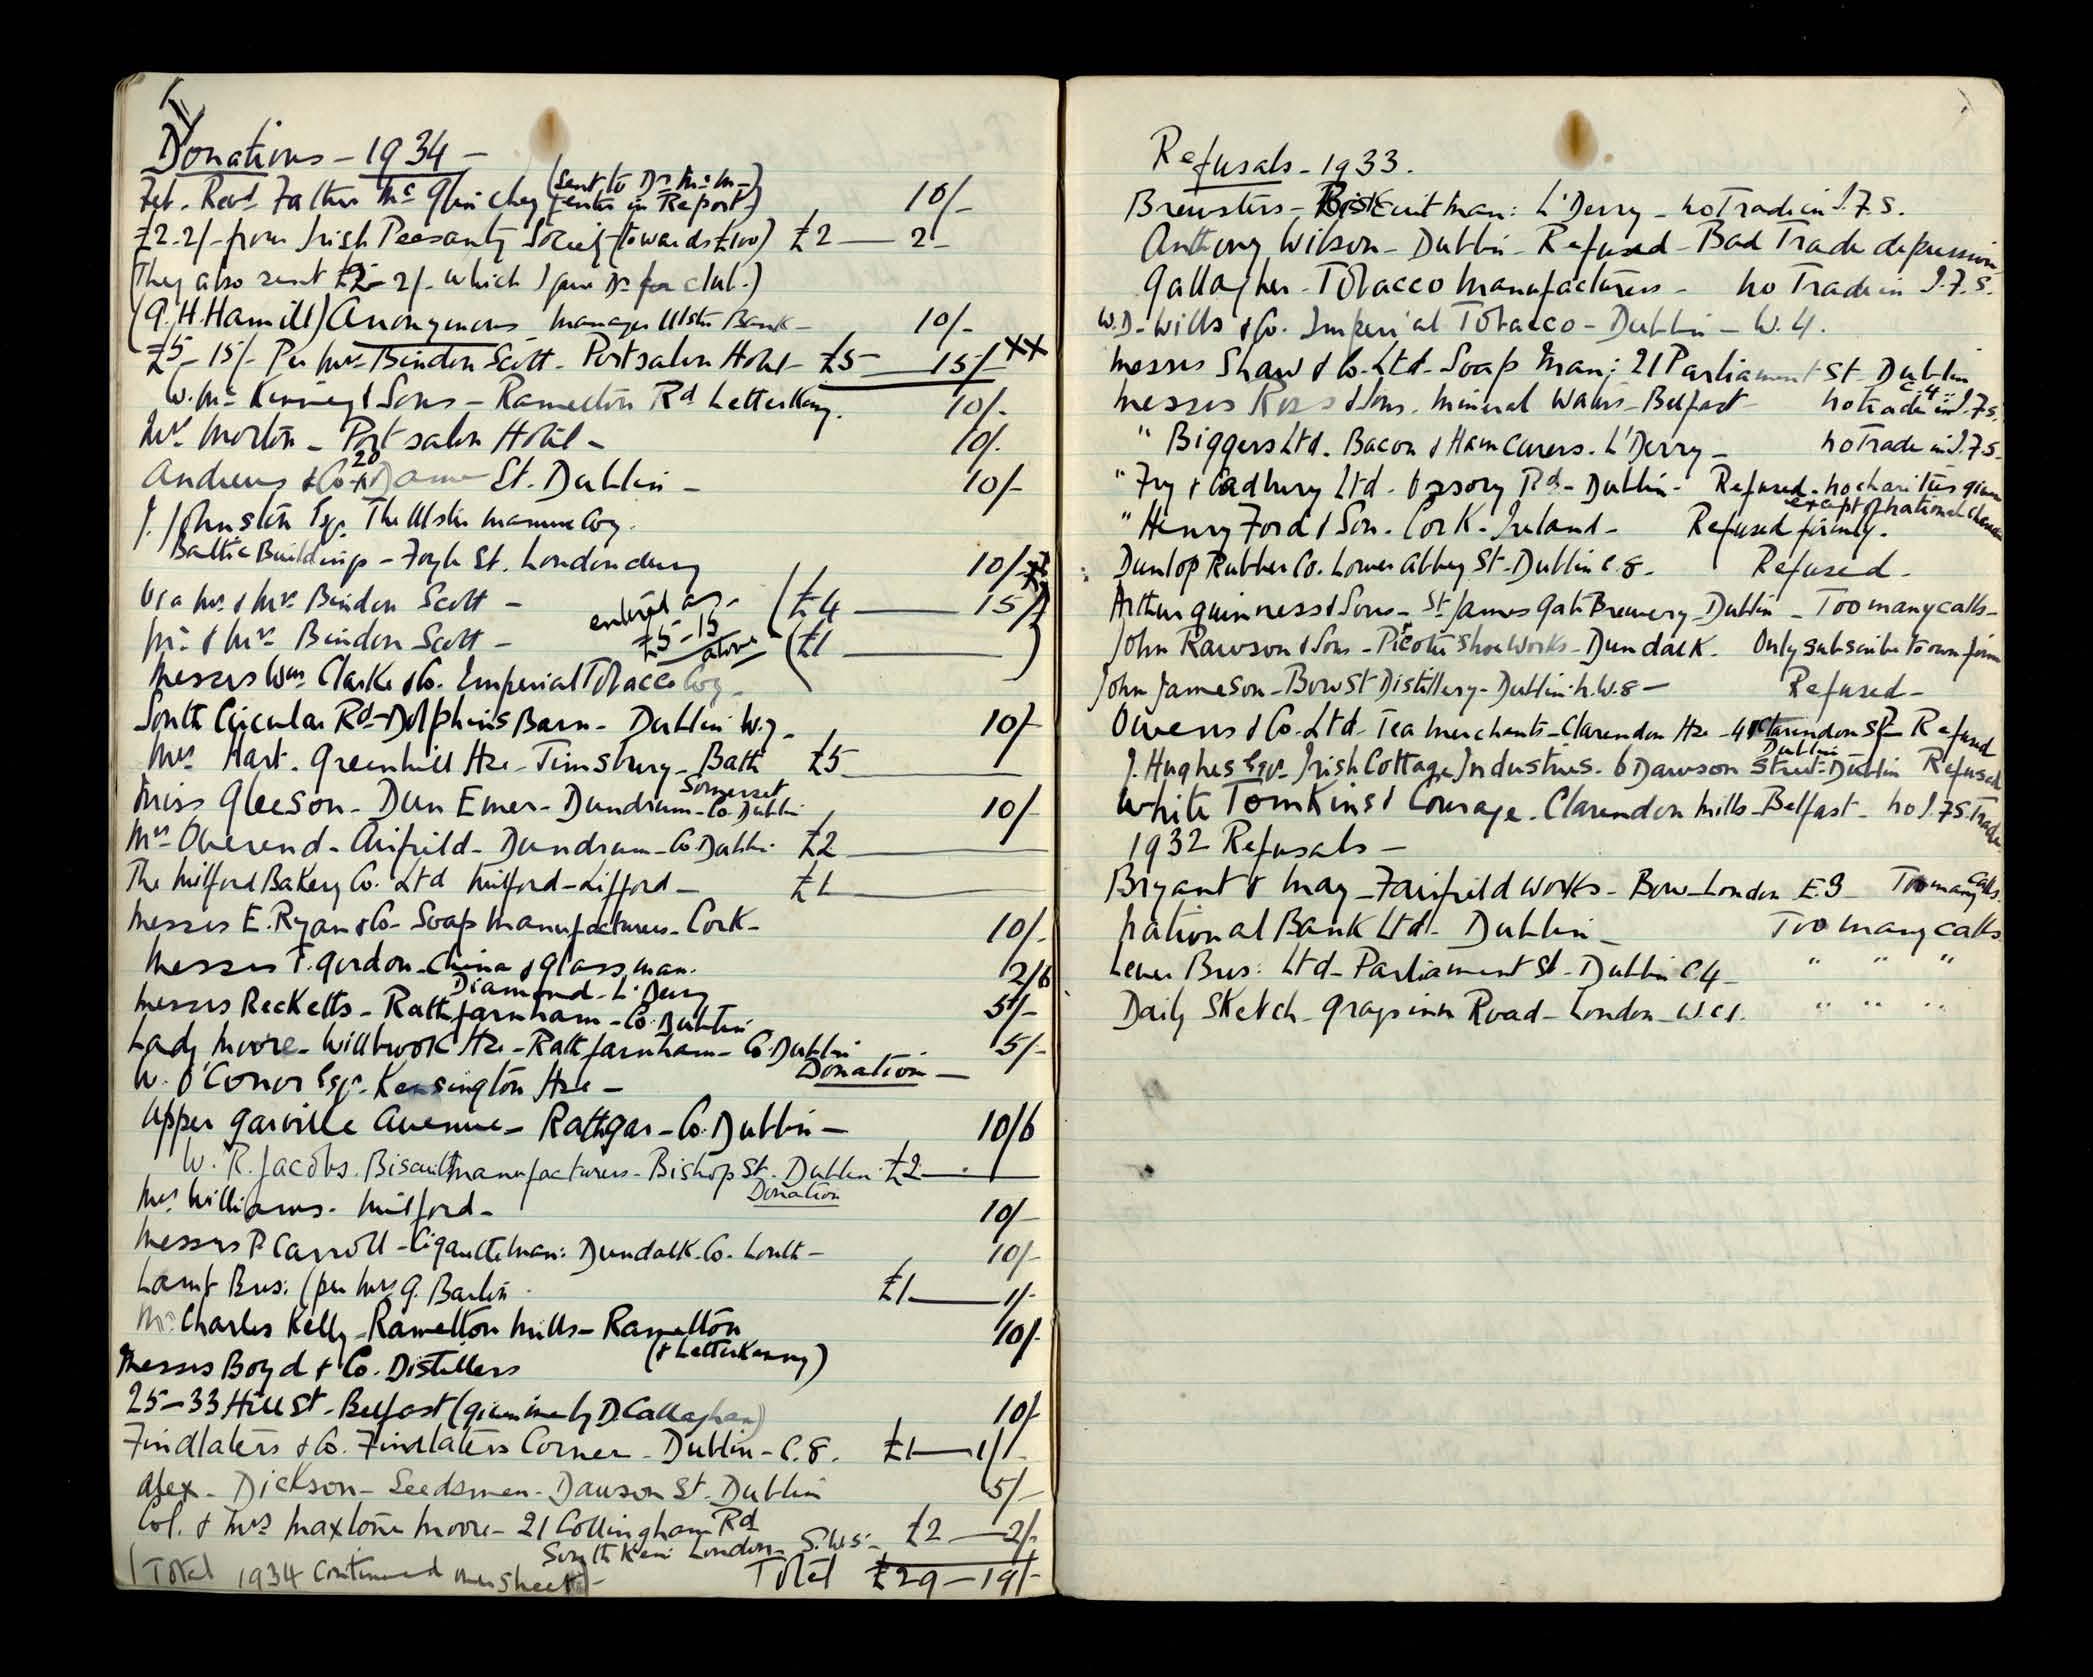 Donations - 1934 -
Feb. Revd Father McGlinchey (sent to Dr McM- enter in Report-) 10/-
£2-2/- from Irish Peasantry Society (towards £100) £2 — 2-
(They also sent £2-2/- which I gave Dr for club.)
(G. H. Hamill) Anonymous Manager Ulster Bank - 10/-
£5-15/- Per Mrs Bindon Scott - Portsalon Hotel - £5 — 15/- xx
W. McKinney & Sons - Ramelton Rd Letterkenny. 10/-
Mr Morton - Portsalon Hotel - 10/-
Andrews & Co - 20 Dame St. Dublin - 10/-
J. Johnston Esq. The Ulster Marine Coy.
Baltic Buildings - Foyle St. Londonderry 10/-
Via Mr & Mrs Bindon Scott - entered as - (£4 — 15/-
Mr & Mrs Bindon Scott - £5-15 above (£1 — )
Messrs Wm Clarke & Co. Imperial Tobacco Coy -
South Circular Rd - Dolphins Barn - Dublin W.7 - 10/-
Mrs Hart. Greenhill Hse - Timsbury - Bath £5 —
Somerset
Miss Gleeson - Dun Emer - Dundrum - Co. Dublin 10/-
Mrs Overend - Airfield - Dundrum - Co Dublin £2 —
The Milford Bakery Co. Ltd Milford - Lifford - £1 —
Messrs E. Ryan & Co - Soap Manufacturers - Cork - 10/-
Messrs T. Gordon - China & Glass man. 2/6
Diamond - L'Derry
Messrs Recketts - Rathfarnham - Co. Dublin 5/-
Lady Moore - Willbrook Hse - Rathfarnham - Co. Dublin 5/-
Donation -
W. O'Conor Esq. Kensington Hse -
Upper Garville Avenue - Rathgar - Co. Dublin - 10/6
W. R. Jacobs. Biscuit manufacturers - Bishop St. Dublin £2 —
Donation
Mrs Williams - Milford - 10/-
Messrs P Carroll - Cigarette Man: Dundalk. Co. Louth - 10/-
Lamb Bros: (per Mrs G. 
£1 — 1/-
Mr Charles Kelly - Ramelton Mills - Ramelton 10/-
(& Letterkenny)
Messrs Boyd & Co. Distillers
25-33 Hill St - Belfast (given me by D. Callaghan) 10/-
Findlaters & Co. Findlaters Corner - Dublin - C.8. £1 — 1/-
Alex - Dickson - Seedsmen - Dawson St. Dublin 5/-
Col. & Mrs Maxtone Moore - 21 Collingham Rd
South Ken: London - S.W.5 - £2 — 2/-
(Total 1934 Continued over sheet) - Total £29 - 19/-
Refusals - 1933.
Brewsters - Biscuit Man: L'Derry - no Trade in I.F.S.
Anthony Wilson - Dublin - Refused - Bad Trade depression
Gallagher - Tobacco Manufacturers - no Trade in I.F.S.
W.D. Wills & Co. Imperial Tobacco - Dublin - W.4.
Messrs Shaw & Co. Ltd - Soap Man: 21 Parliament St - Dublin C.4.
Messrs Ross & Sons. Mineral Waters - Belfast - no trade in I.F.S.
" Biggers Ltd. Bacon & Ham Curers. L'Derry - no Trade in I.F.S.
" Fry & Cadbury Ltd. Ossory Rd - Dublin - Refused - no charities given except of national character
" Henry Ford & Son. Cork - Ireland - Refused firmly.
Dunlop Rubber Co. Lower Abbey St - Dublin C.8 - Refused -
Arthur Guinness & Sons - St James Gate Brewery - Dublin - Too many calls -
John Rawson & Sons - Shoe Works - Dundalk. Only subscribe to own firm
John Jameson - Bow St Distillery - Dublin N.W.8 - Refused -
Owens & Co. Ltd - Tea Merchants - Clarendon Hse - 41 Clarendon St - Refused
Dublin -
J. Hughes Esq. Irish Cottage Industries. 6 Dawson Street - Dublin Refused
White Tomkins & Courage. Clarendon Mills - Belfast - no I.F.S. Trade
1932 Refusals -
Bryant & May - Fairfield Works - Bow - London E.3 - Too many calls.
National Bank Ltd - Dublin - Too many calls
Lever Bros: Ltd - Parliament St - Dublin C4 - " " "
Daily Sketch - Grays inn Road - London - W.C.1. " " "